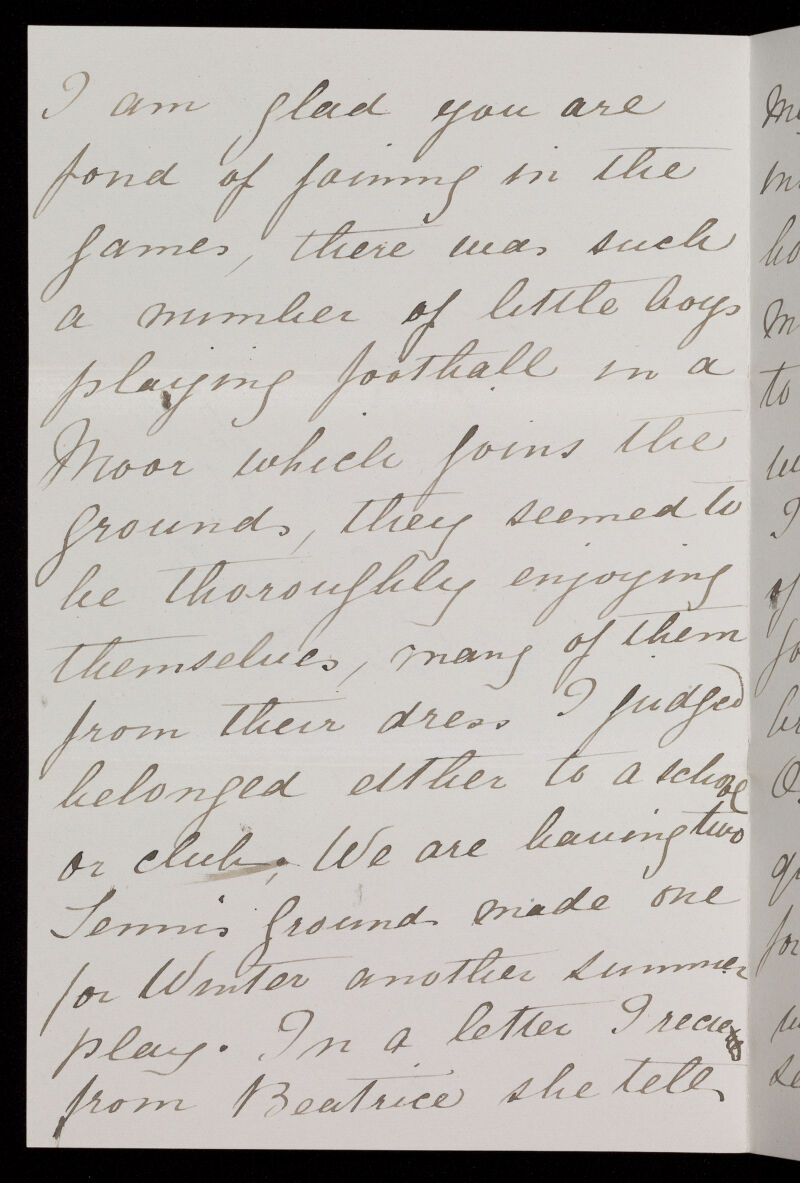 I am glad you are
fond of joining in the
games, there was such
a number of little boys
playing football in a
Moor which joins the
grounds, they seemed to
be thoroughly enjoying
themselves, many of them
from their dress I judged
belonged either to a school
or club. We are having two
Tennis grounds made one
for Winter another summer
play. In a letter I
from Beatrice she tells